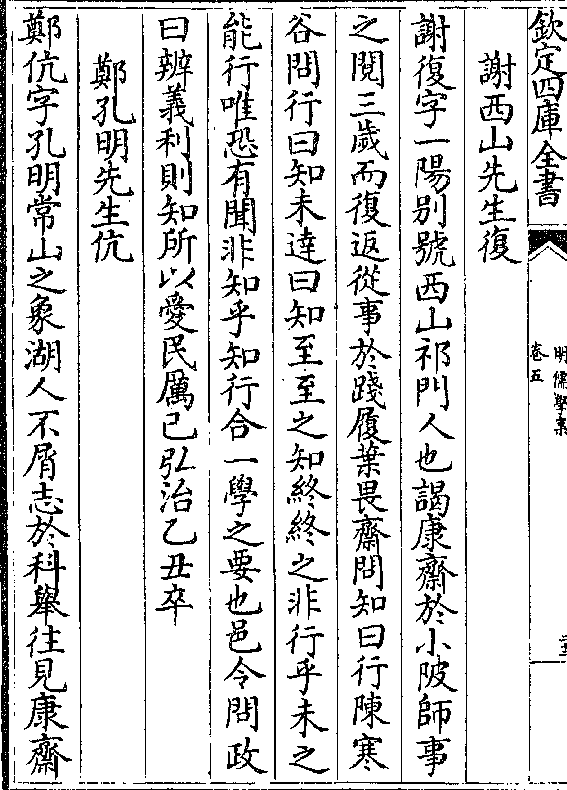 欽定四庫全書
明儒學案
卷五
二十三
謝西山先生復
謝復字一陽別號西山祁門人也謁康齋於小陂師事
之閱三歲而復返從事於踐履葉畏齋問知曰行陳寒
谷問行曰知未達曰知至至之知終終之非行乎未之
能行唯恐有聞非知乎知行合一學之要也邑令問政
曰辨義利則知所以愛民厲已弘治乙丑卒
鄭孔明先生伉
鄭伉字孔明常山之象湖人不屑志於科舉往見康齋